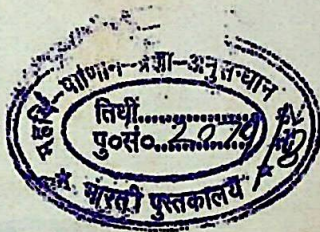 महर्षि-पाणिनि-प्रज्ञा-अनुसन्धान
तिथी..................
पु०सं०...2079.......
भारती पुस्तकालय